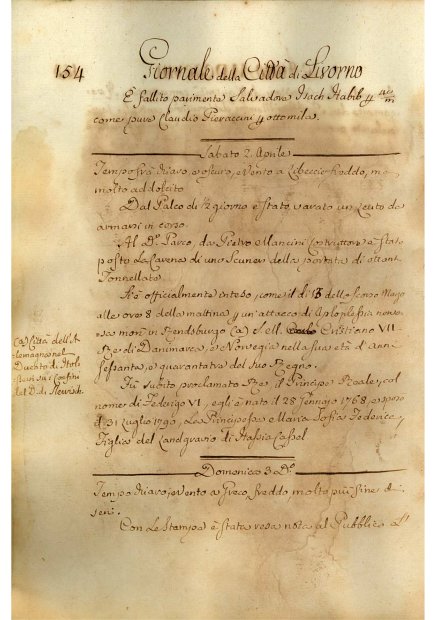 154 Giornale della Città di Livorno
È fallito parimente Salvadore Isach Habib p
come pure Claudio Pieraccini p ottomila.
Sabato 2. Aprile
Tempo frà chiaro e oscuro, vento a Libeccio freddo, ma
molto addolcito
Dal Palco di ½ giorno è stato varato un Leuto da
armarsi in corso.
Al Dº Parco, da Pietro Mancini Costruttore è stata
posta la Carena di uno Scuner della portata di ottant
Tonnellate
Si è officialmente inteso, come il dì 13 dello scorso Marzo
alle ore 8 della mattina p un'attacco di Apoplessia nervo
sa morì in Rendsburgo (a) S. M. Cristiano VII
Re di Danimarca, e Norvegia nella sua età d'Anni
sessanta, e quarantatre del suo Regno.
Fù subito proclamato Re, il Principe Reale, col
nome di Federigo VI, egli è nato di 28 Jennajo 1768, e sposò
il 31 Luglio 1790, La Principessa Maria Sofia Federica,
Figlia del Landgravio di Hassia Cassel
(a) Città dell'A
lemagna nel
Ducato di Hols
tein sui Confini
del D. di Slewich.
Domenica 3 Dº
Tempo chiaro, vento a Greco, freddo molto più fine di
jeri.
Con le Stampe è stata resa nota al Pubblico